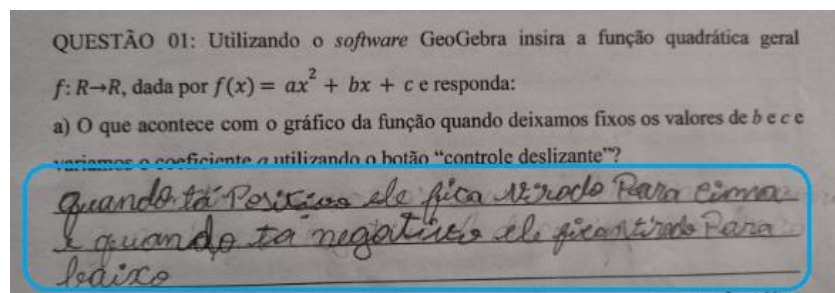 QUESTÃO 01: Utilizando o software GeoGebra insira a função quadrática geral
f: R→R, dada por f(x) = ax² + bx + c e responda:
a) O que acontece com o gráfico da função quando deixamos fixos os valores de b e c e
variamos o coeficiente a utilizando o botão “controle deslizante”?
quando tá Positivo ele fica virado Para cima
e quando ta negativo ele fica Para
baixo